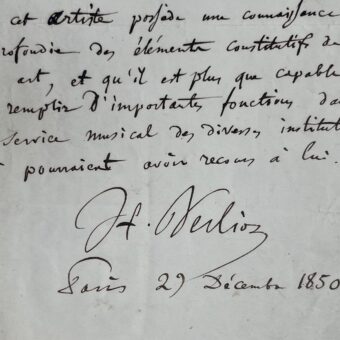 cet artiste possède une connaissance
rofondie des éléments constitutifs de
art, et qu'il est plus que capable
remplir d'importantes fonctions da
service musical des diverses institut
pourraient avoir recours à lui.
H. Berlioz
Paris 29 Décembre 1850